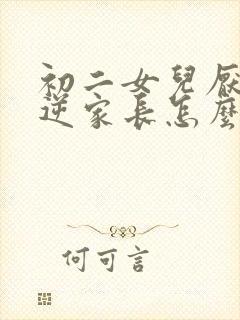 初二女兒厭
逆家長怎麼
何可言